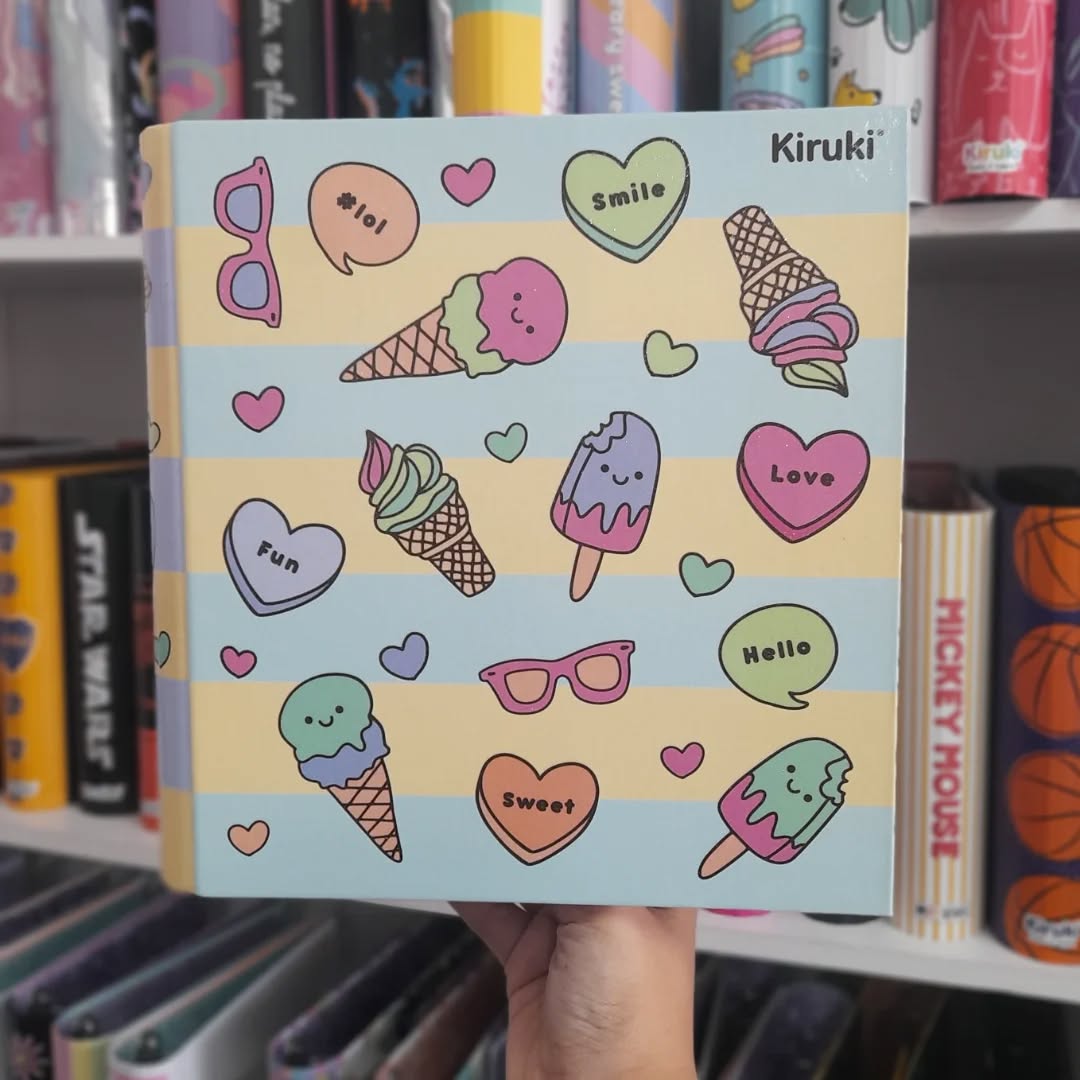 Kiruki
#lol
Smile
Love
Fun
Hello
Sweet
STAR WARS
MICKEY MOUSE
Kiruki
Kiruki